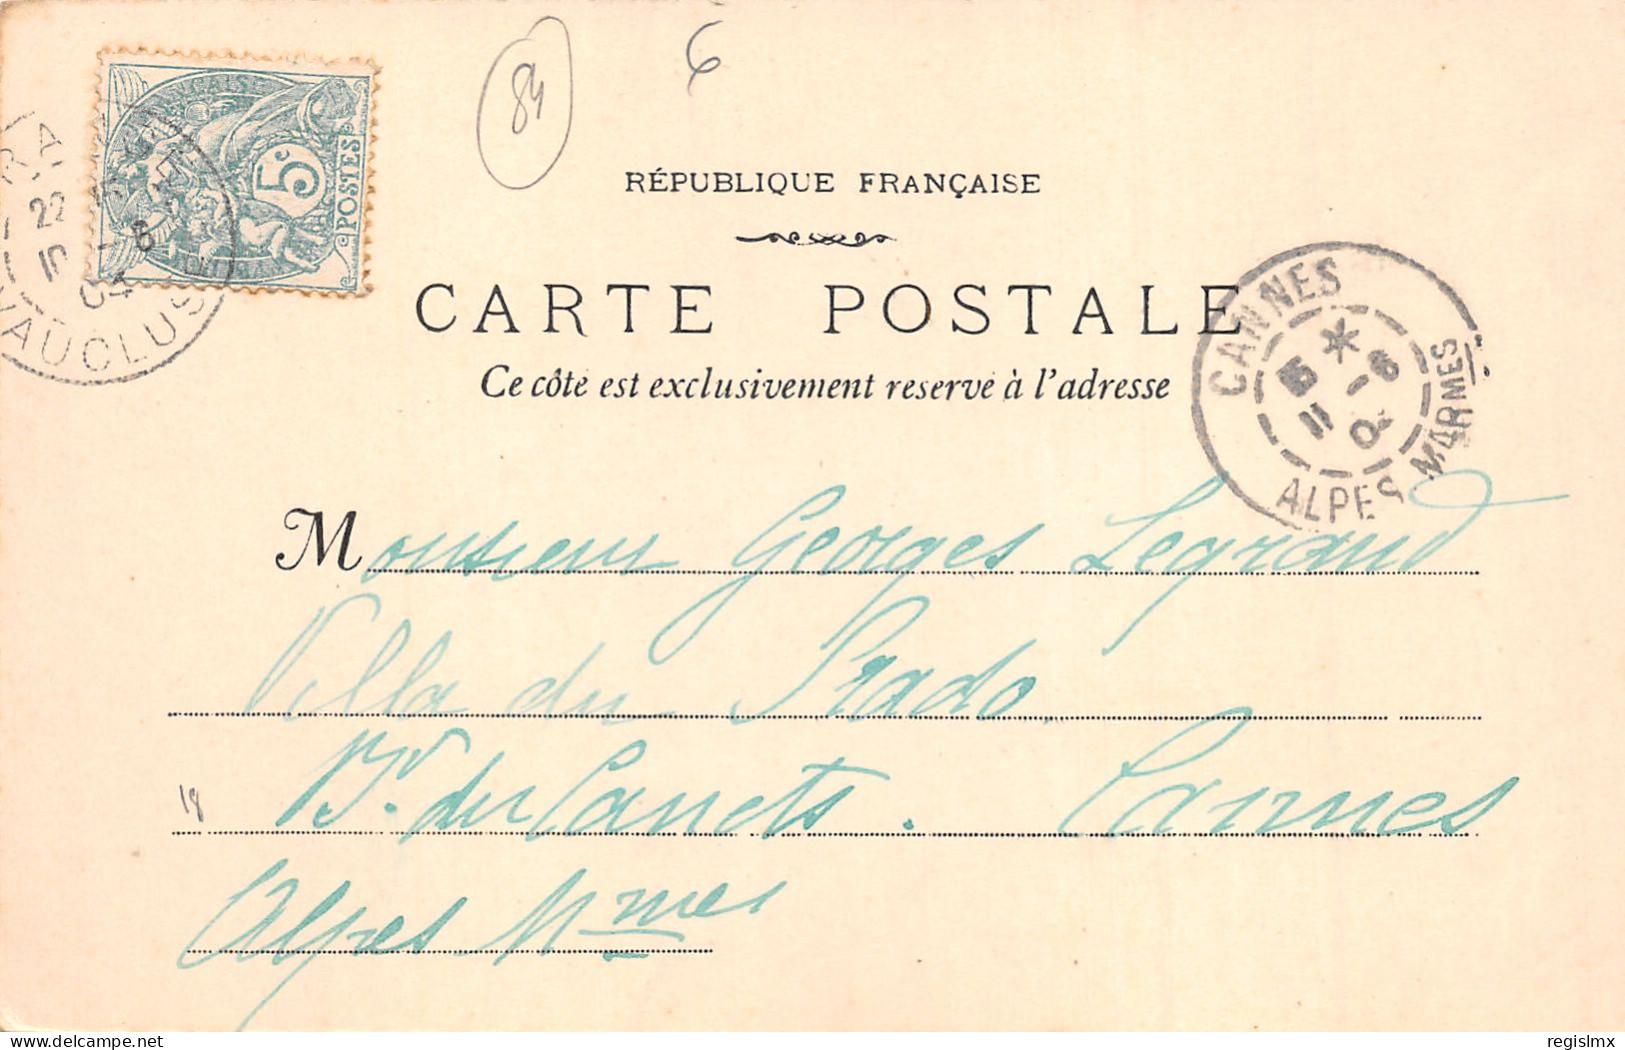 6
84
RÉPUBLIQUE FRANÇAISE
CARTE POSTALE
Ce côté est exclusivement reservé à l'adresse
5c
POSTES
22
10 -6
04
VAUCLUSE
CANNES
11 -6
ALPES MARMES
Monsieur Georges Legrand
Villa du Prado
Bd. du Cannets. Cannes
Alpes Mmes
18
regislmx